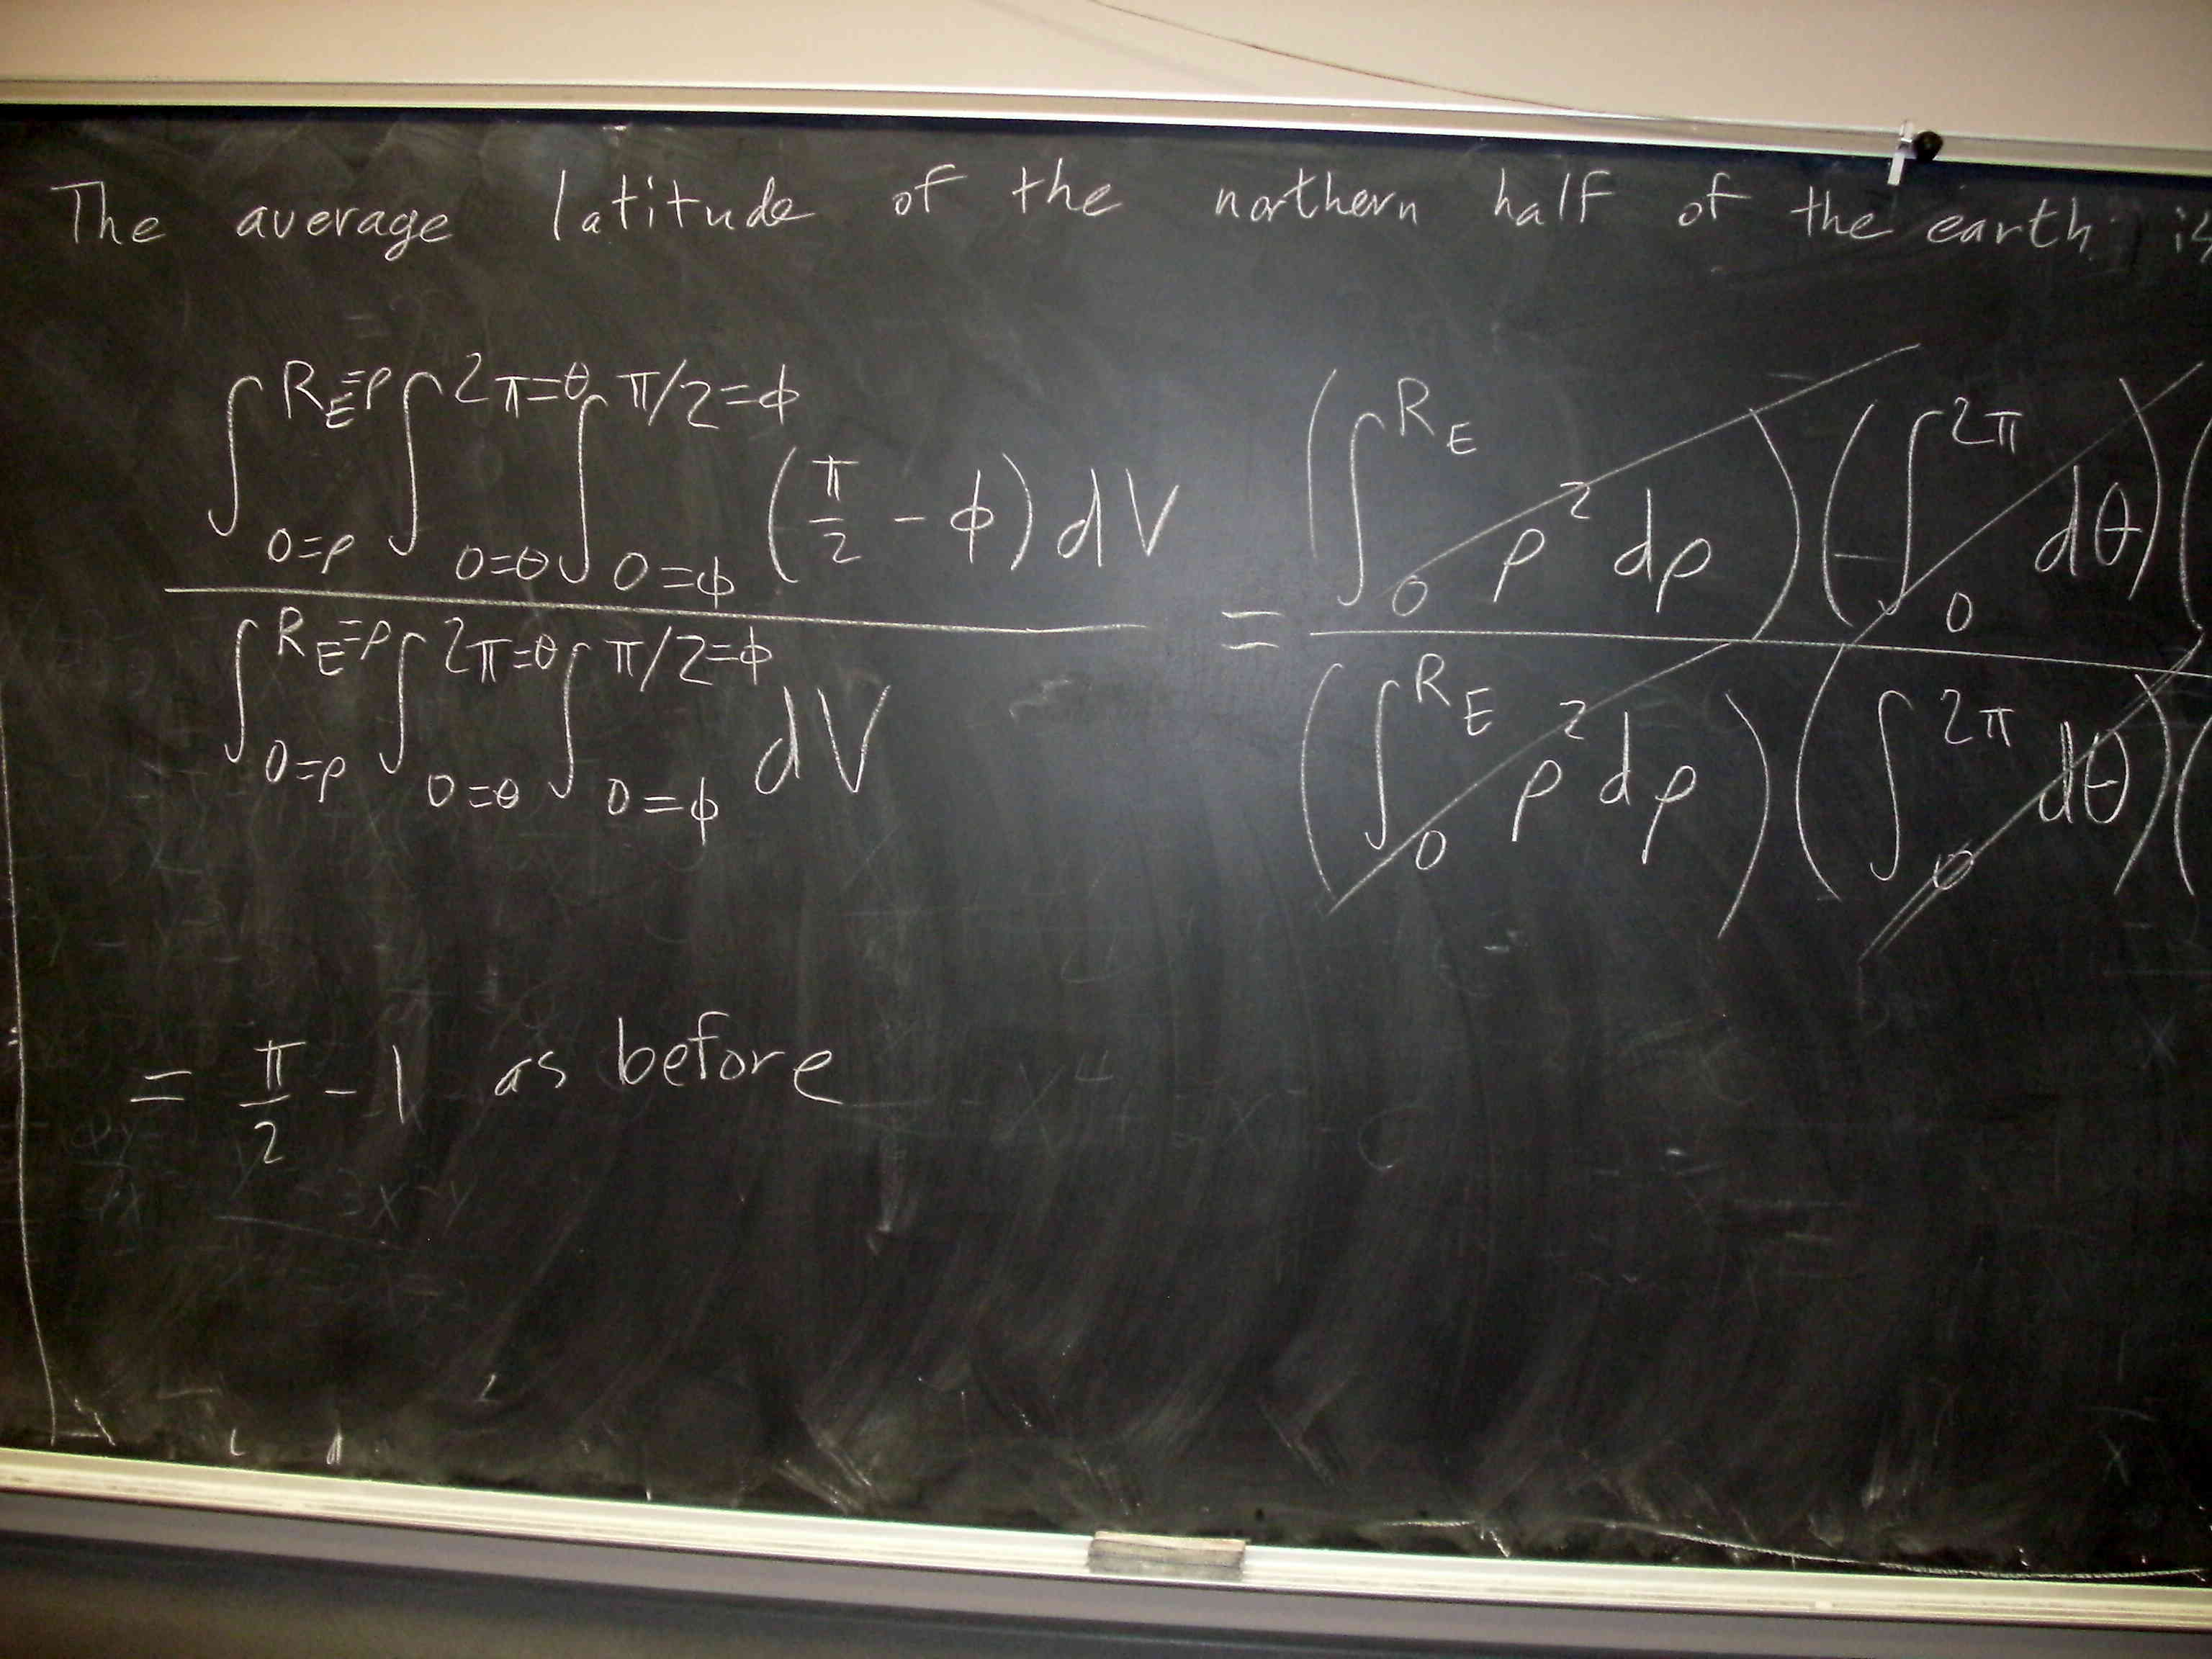 The average latitude of the northern half of the earth is
∫_{0=ρ}^{R_E=ρ} ∫_{0=θ}^{2π=θ} ∫_{0=φ}^{π/2=φ} (π/2 - φ) dV / ∫_{0=ρ}^{R_E=ρ} ∫_{0=θ}^{2π=θ} ∫_{0=φ}^{π/2=φ} dV = (∫_0^{R_E} ρ² dρ)(∫_0^{2π} dθ)( / (∫_0^{R_E} ρ² dρ)(∫_0^{2π} dθ)(
= π/2 - 1 as before